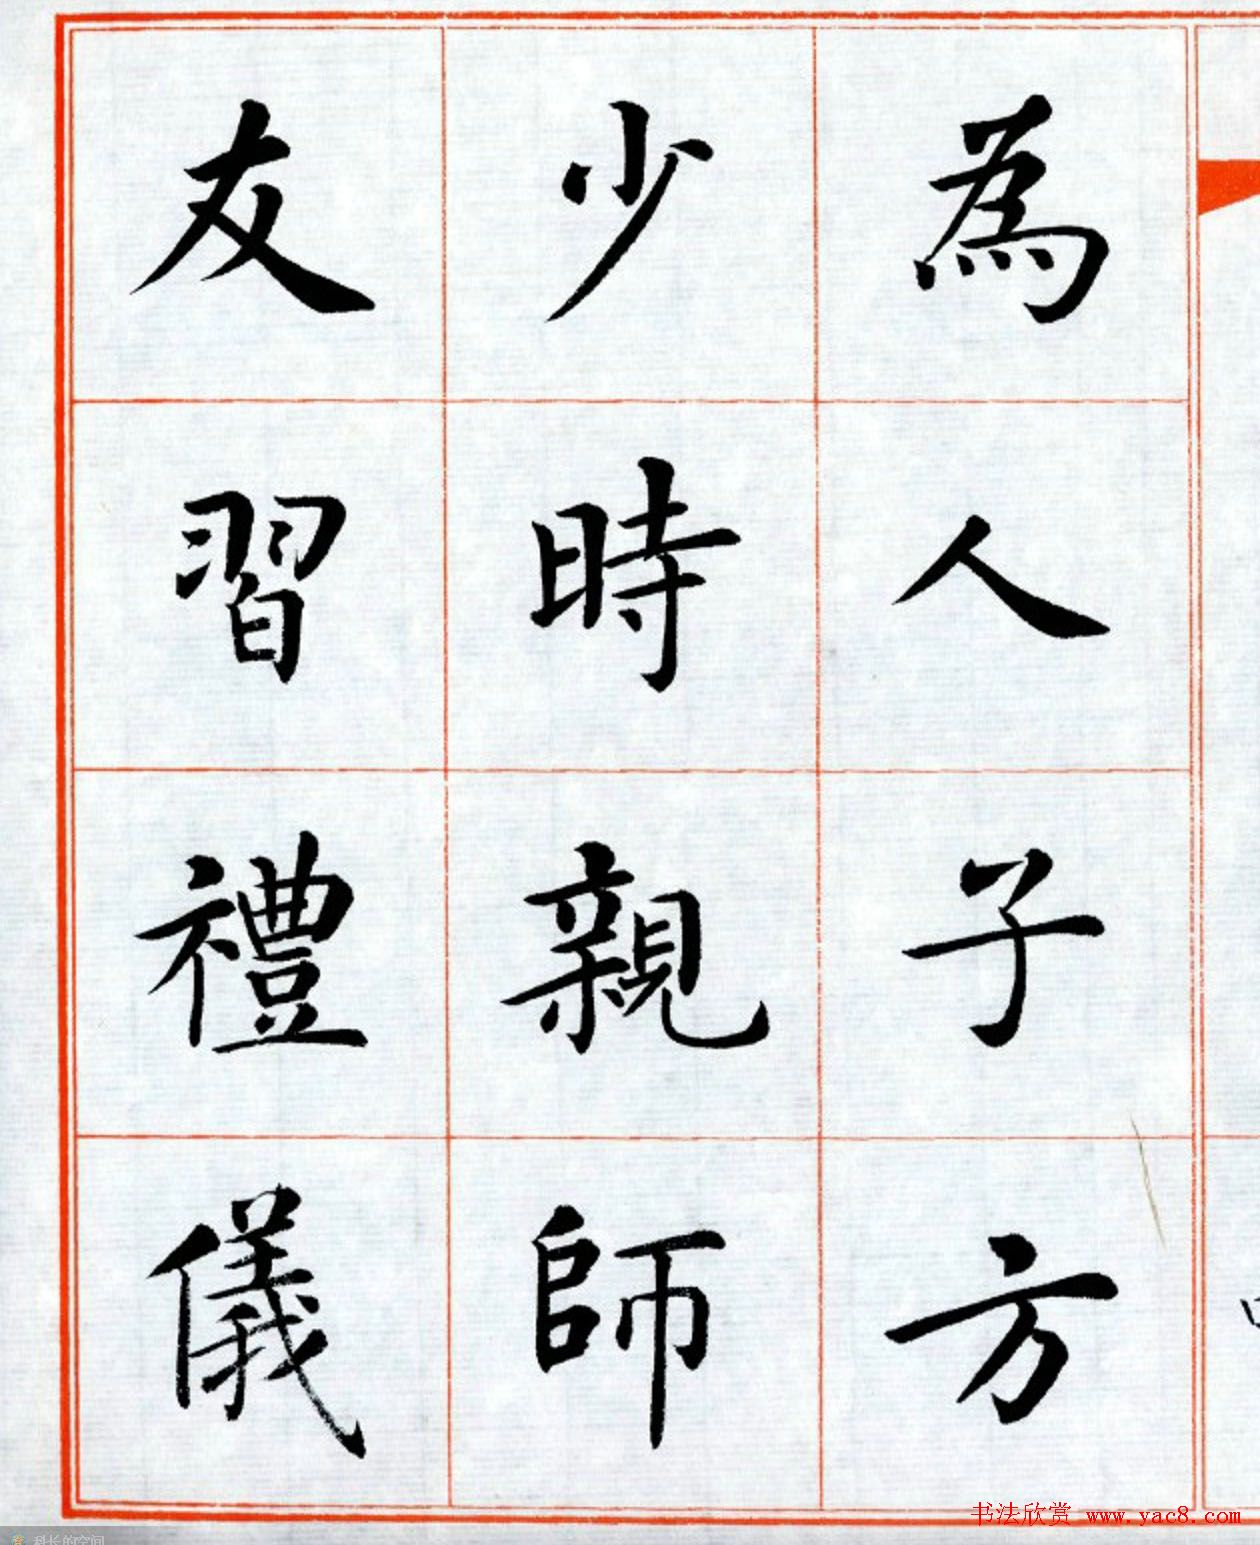 為人子方
少時親師
友習禮儀
书法欣赏 www.yac8.com
科长的空间